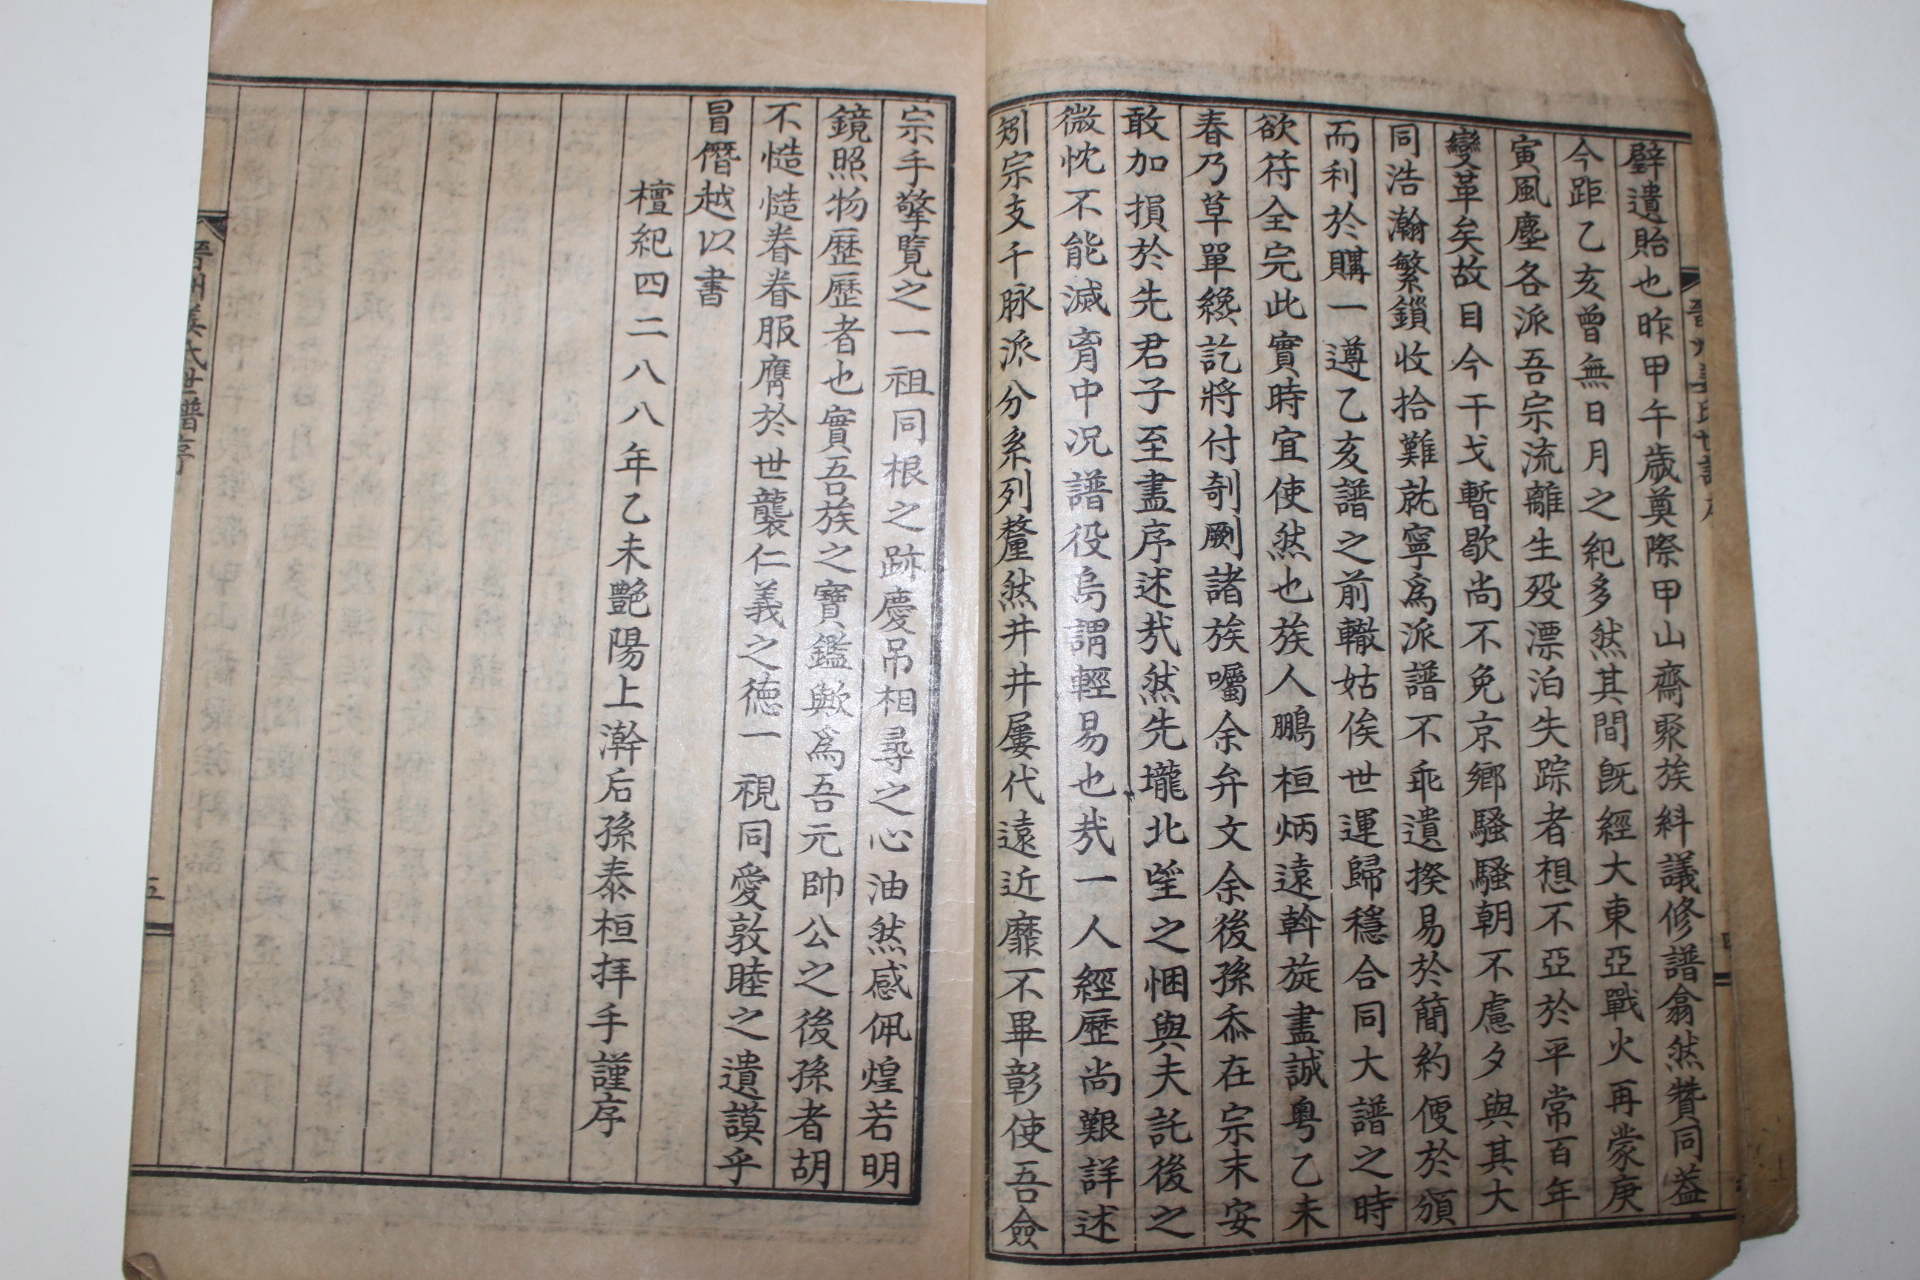 譬遺貽也昨甲午歲奠際甲山齋聚族糾議修譜翕然贊同盖
今距乙亥曾無日月之紀多然其間旣經大東亞戰火再蒙庚
寅風塵各派吾宗流離生殁漂泊失踪者想不亞於平常百年
變革矣故目今干戈暫歇尚不免京鄕騷騷朝不慮夕與其大
同浩瀚繁鎖收拾難就寧爲派譜不乖遺揆易於簡約便於頒
而利於購一遵乙亥譜之前轍姑俟世運歸穩合同大譜之時
欲符全完此實時宜使然也族人鵬桓炳遠斡旋盡誠粤乙未
春乃草單纔訖將付剞劂諸族囑余弁文余後孫忝在宗末安
敢加損於先君子至盡序述㢤然先壠北望之悃與夫託後之
微忱不能滅㫄中况譜役烏謂輕易也㢤一人經歷尚艱詳述
矧宗支千脉派分系列釐然井井屢代遠近靡不畢彰使吾僉
宗手擎覽之一 祖同根之跡慶吊相尋之心油然感佩煌若明
鏡照物歷歷者也實吾族之寶鑑歟爲吾元帥公之後孫者胡
不慥慥眷眷服膺於世襲仁義之德一 視同愛敦睦之遺謨乎
冒僭越以書
檀紀四二八八年乙未艶陽上澣后孫泰桓拜手謹序
晋州姜氏世譜序
五